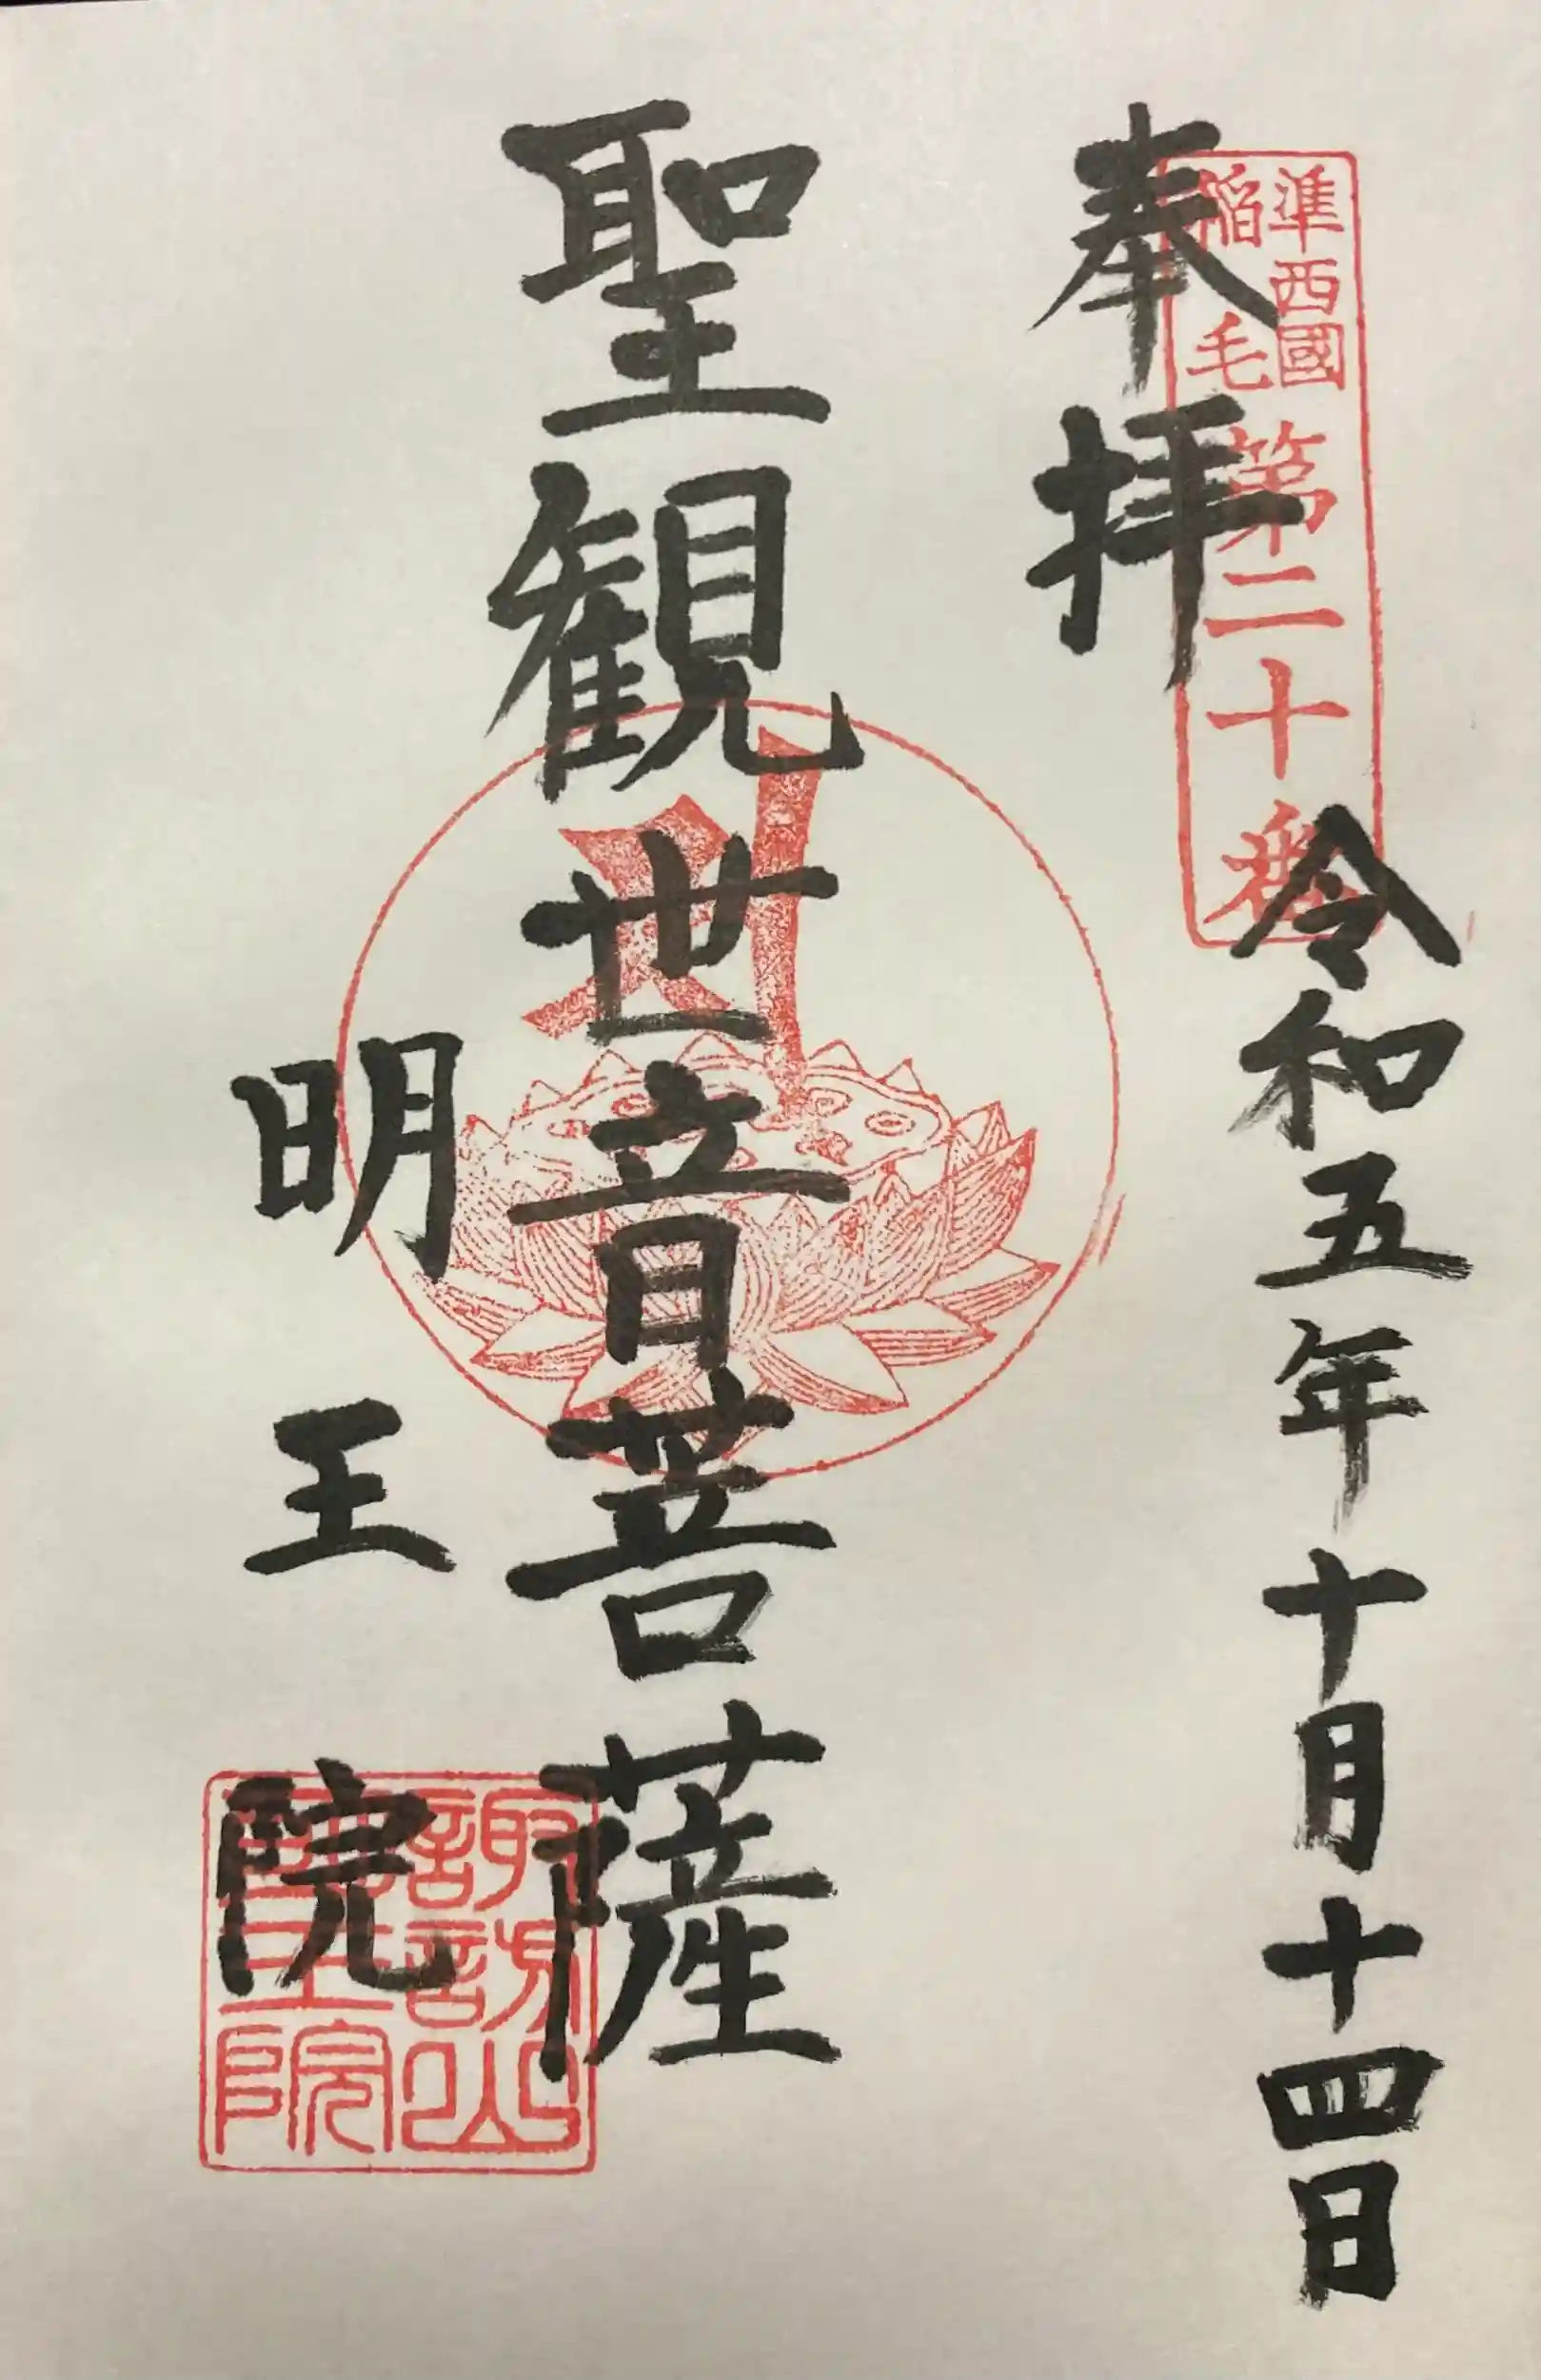 奉拝
準西國
稲毛
第二十番
令和五年十月十四日
聖観世音菩薩
明王院
諏訪山
明王院